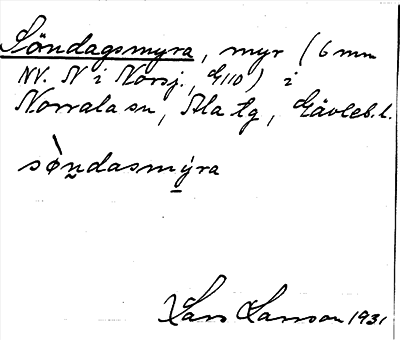 Söndagsmyra, myr (6 mm
NV. N i Norsj., G110) i
Norrala sn, Ala tg, Gävleb. l.
sò̀n̲dasmỳ̲ra
Lars Larsson 1931